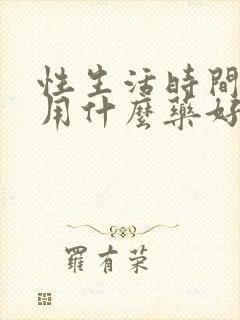 性生活時間
用什麼藥好
羅有荣